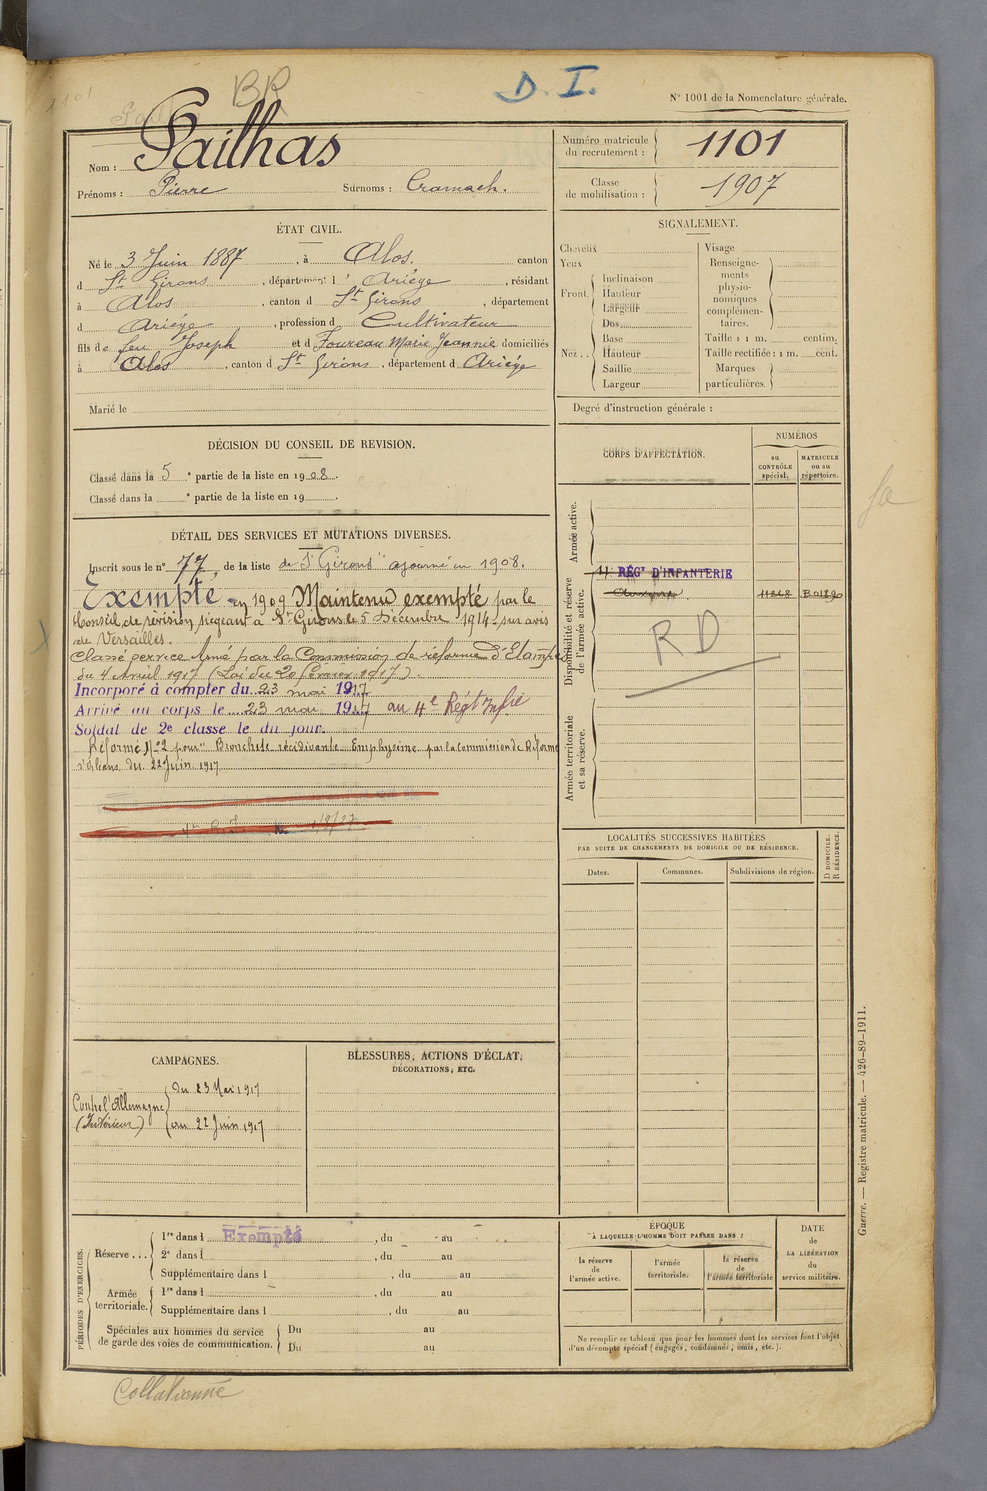 1101
BR
D. I.
N° 1001 de la Nomenclature générale.
Nom : Pailhas
Prénoms : Pierre Surnoms : Cramach.
Numéro matricule du recrutement : 1101
Classe de mobilisation : 1907
ÉTAT CIVIL.
Né le 3 Juin 1887, à Alos. canton
d St Girons, département d Ariège, résidant
à Alos, canton d St Girons, département
d Ariège, profession d Cultivateur
fils de feu Joseph et d Foureau Marie Jeannie domiciliés
à Alos, canton d St Girons, département d Ariège
Marié le
SIGNALEMENT.
Cheveux
Yeux
Front. Inclinaison
Hauteur
Largeur
Dos
Nez... Base
Hauteur
Saillie
Largeur
Visage
Renseigne-
ments
physio-
nomiques
complémen-
taires.
Taille : 1 m. centim.
Taille rectifiée : 1 m. cent.
Marques
particulières.
Degré d'instruction générale :
DÉCISION DU CONSEIL DE REVISION.
Classé dans la 5e partie de la liste en 1908.
Classé dans la e partie de la liste en 19 .
DÉTAIL DES SERVICES ET MUTATIONS DIVERSES.
Inscrit sous le n° 77, de la liste de St Girons ajourné en 1908.
Exempté en 1909 Maintenu exempté par le
Conseil de révision siégeant à St Girons le 5 Décembre 1914 sur avis
de Versailles.
Classé service Armé par la Commission de réforme d'Etampes
du 4 Avril 1917 (Loi du 20 février 1917).
Incorporé à compter du 23 mai 1917
Arrivé au corps le 23 mai 1917 au 4e Régt Infie
Soldat de 2e classe le dit jour.
Réformé N°2 pour "Bronchite récidivante Emphysème par la commission de Réforme
d'Orléans du 22 Juin 1917
CORPS D'AFFECTATION.
NUMÉROS
au CONTRÔLE spécial.
MATRICULE ou au répertoire.
Armée active.
Disponibilité et réserve de l'armée active.
RÉGT D'INFANTERIE
Auxerre
RD
Armée territoriale et sa réserve.
LOCALITÉS SUCCESSIVES HABITÉES
PAR SUITE DE CHANGEMENTS DE DOMICILE OU DE RÉSIDENCE.
Dates. Communes. Subdivisions de région. D DOMICILE. R RÉSIDENCE.
CAMPAGNES.
Contre l'Allemagne
(Intérieur)
du 23 Mai 1917
au 22 Juin 1917
BLESSURES, ACTIONS D'ÉCLAT,
DÉCORATIONS, ETC.
PÉRIODES D'EXERCICES.
Réserve... 1re dans l Exempté, du au
2e dans l , du au
Supplémentaire dans l , du au
Armée territoriale. 1re dans l , du au
Supplémentaire dans l , du au
Spéciales aux hommes du service
de garde des voies de communication.
Du au
Du au
ÉPOQUE
À LAQUELLE L'HOMME DOIT PASSER DANS :
la réserve de l'armée active.
l'armée territoriale.
la réserve de l'armée territoriale
DATE
de
LA LIBÉRATION
du
service militaire.
Ne remplir ce tableau que pour les hommes dont les services font l'objet
d'un décompte spécial (engagés, condamnés, omis, etc.).
Guerre. — Registre matricule. — 426-89-1911.
Collationné